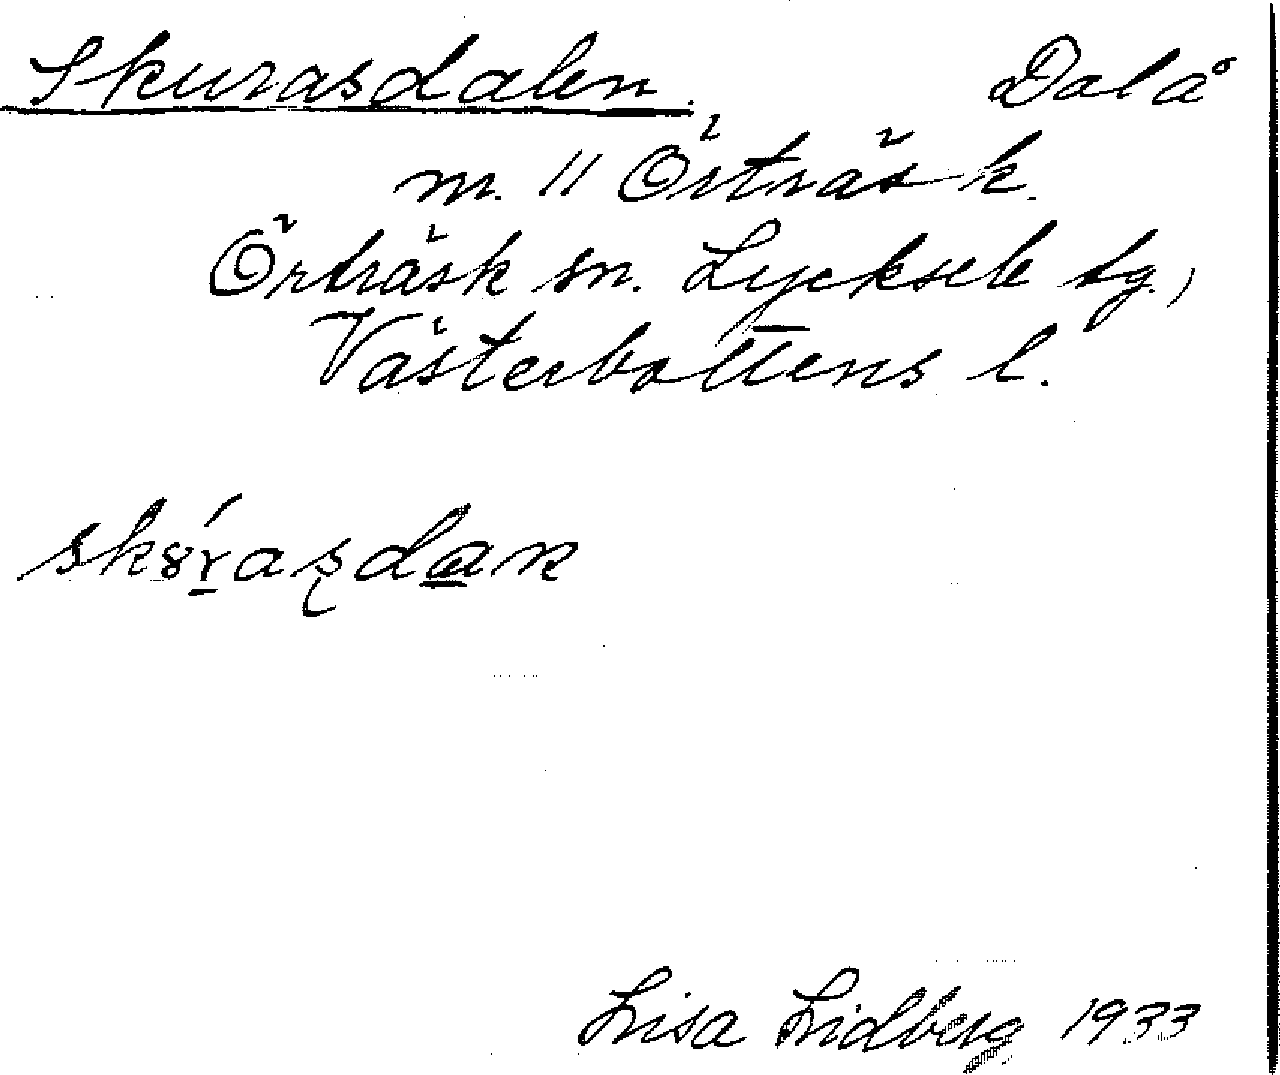 Skurasdalen. Dalå
m. 11 Örträsk.
Örträsk sn. Lycksele tg.,
Västerbottens l.
Lisa Lidberg 1933